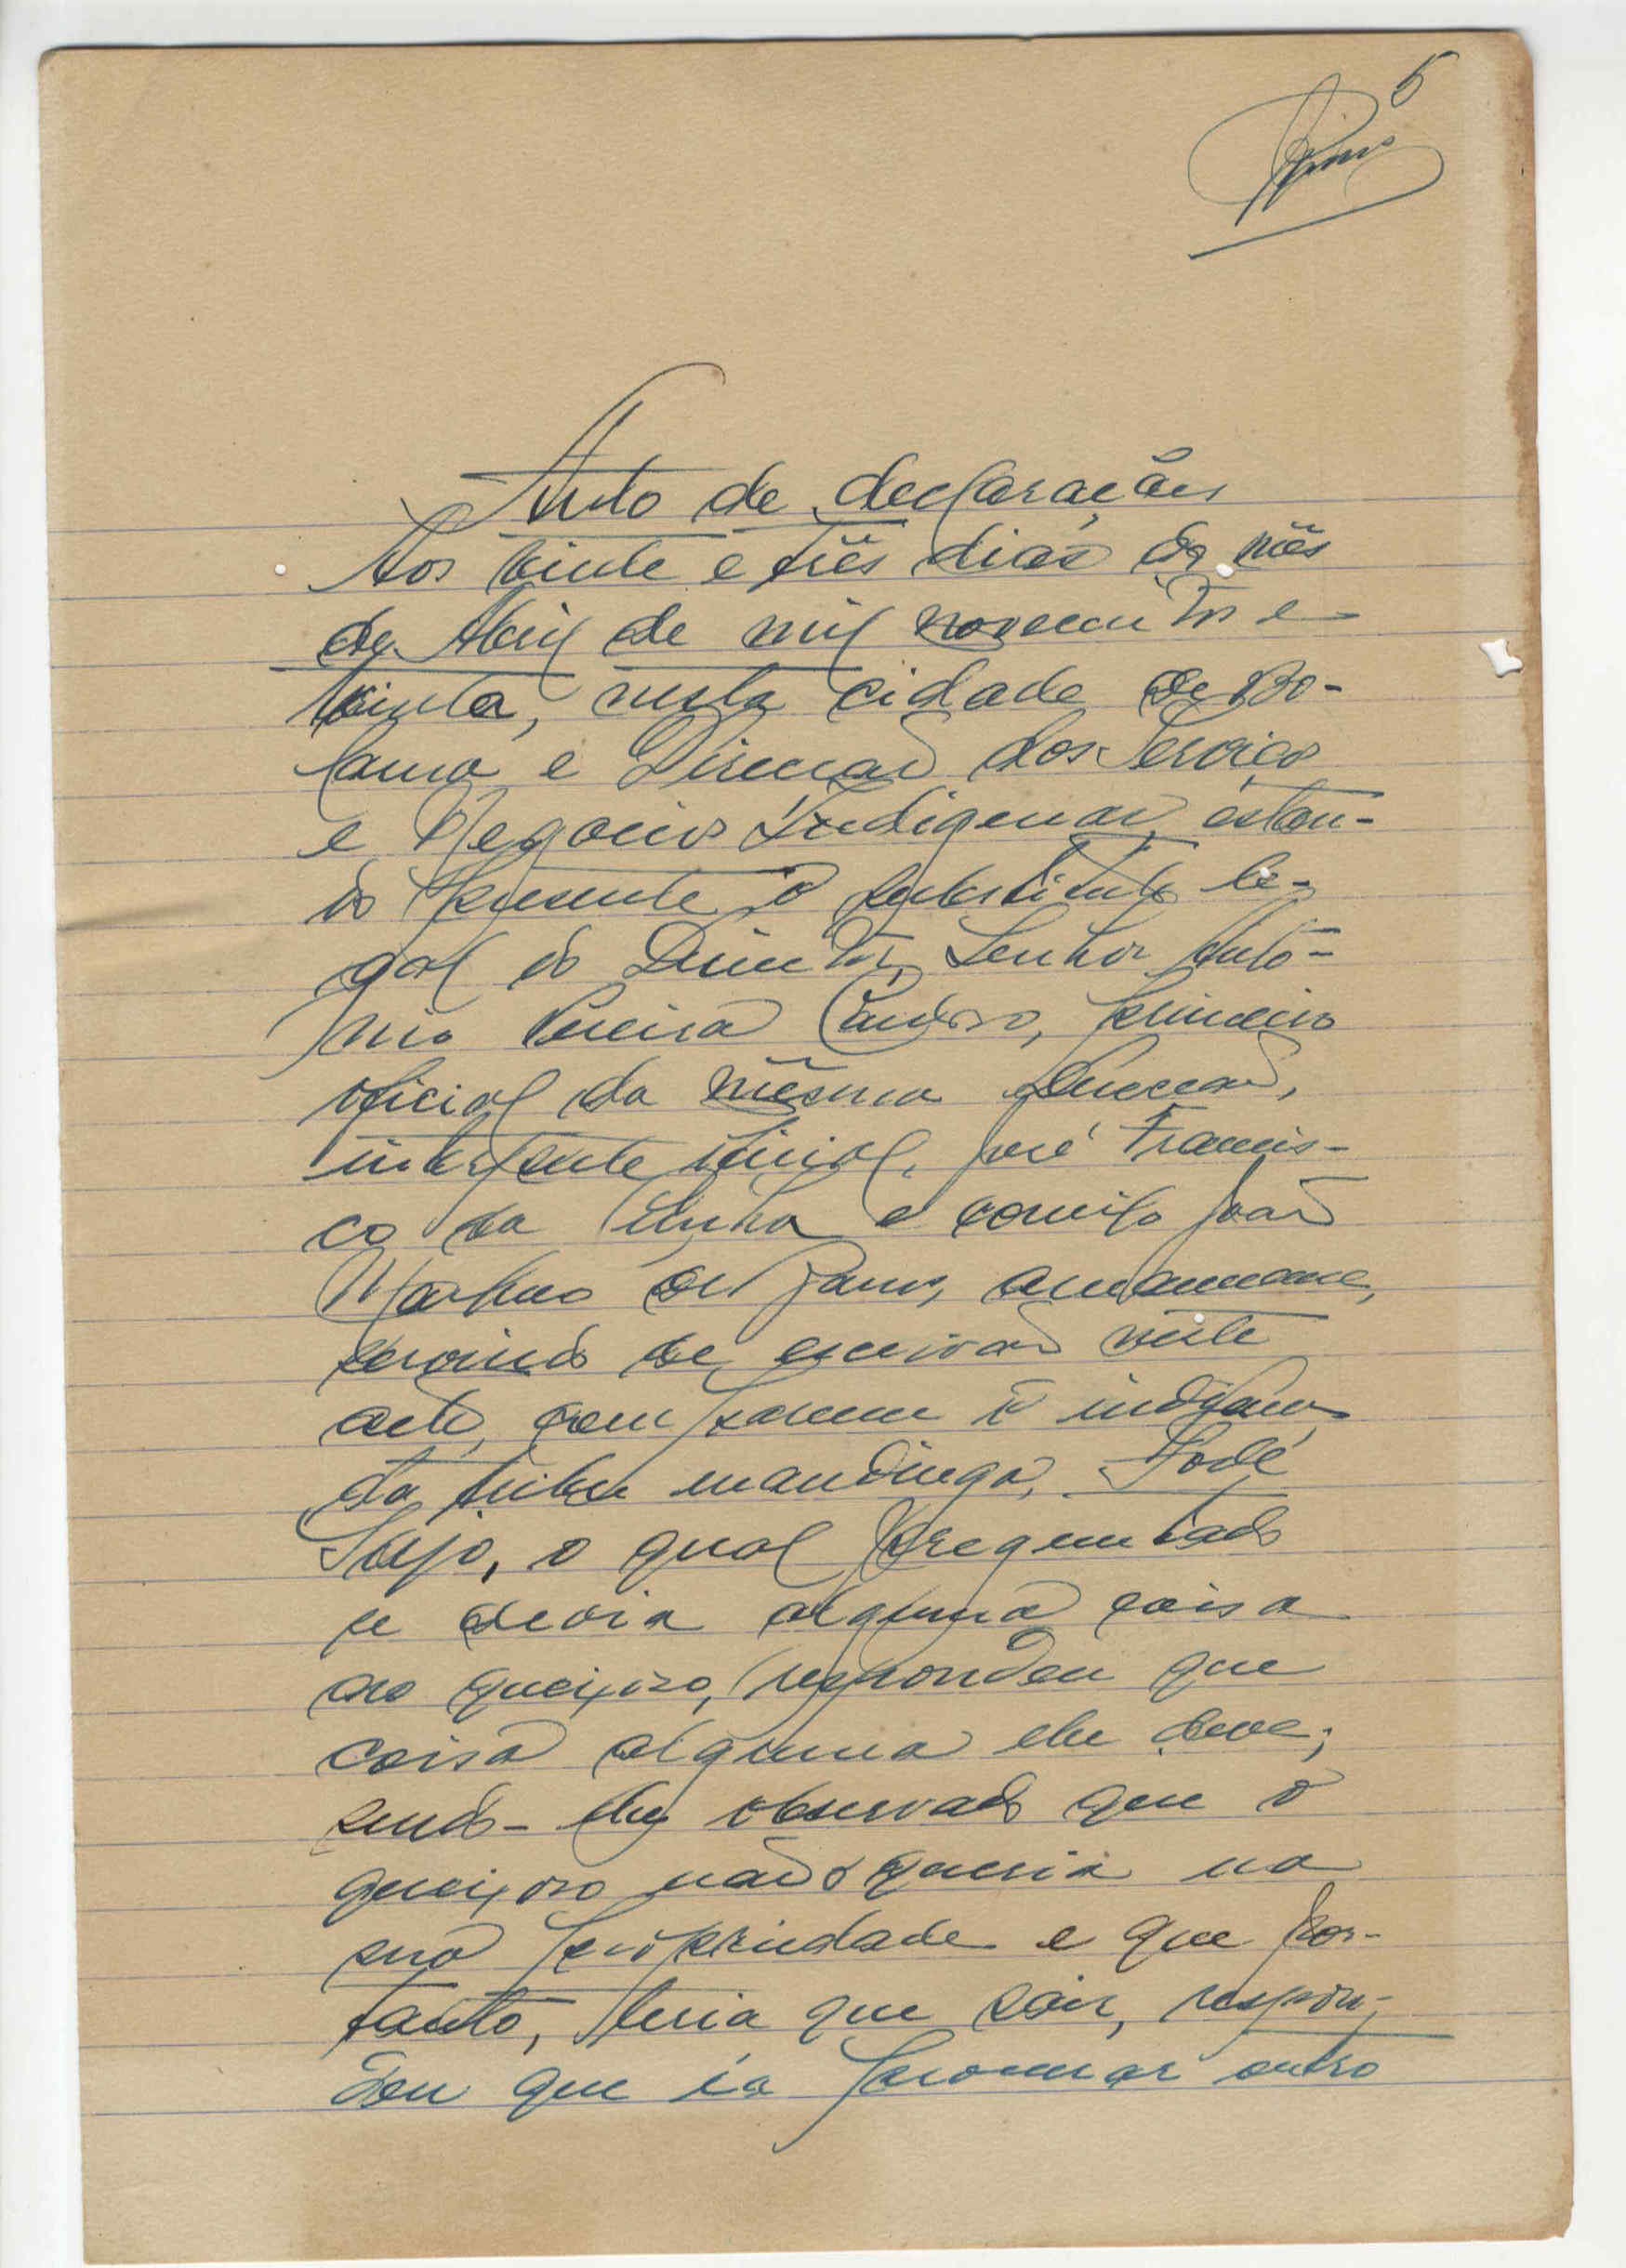 5
Auto de declarações
Aos vinte e três dias do mês
de Abril de mil novecentos e
trinta, nesta cidade de Bo-
lama e Direcção dos Serviços
e Negocios Indigenas, estan-
do presente o substituto le-
gal do Director, Senhor Antó-
nio Pereira Cardoso, primeiro
oficial da mêsma Direcção,
interprete oficial, José Francis-
co da Cunha e comigo João
de amanuense,
servindo de escrivão neste
auto, compareceu o indigena
da tribu mandinga, Fodé
o qual preguntado
se devia alguma coisa
ao queixoso, respondeu que
coisa alguma ele deve;
sendo-lhe observado que o
queixoso não o queria na
sua propriedade e que por-
tanto, teria que sair, respon-
deu que ia procurar outro